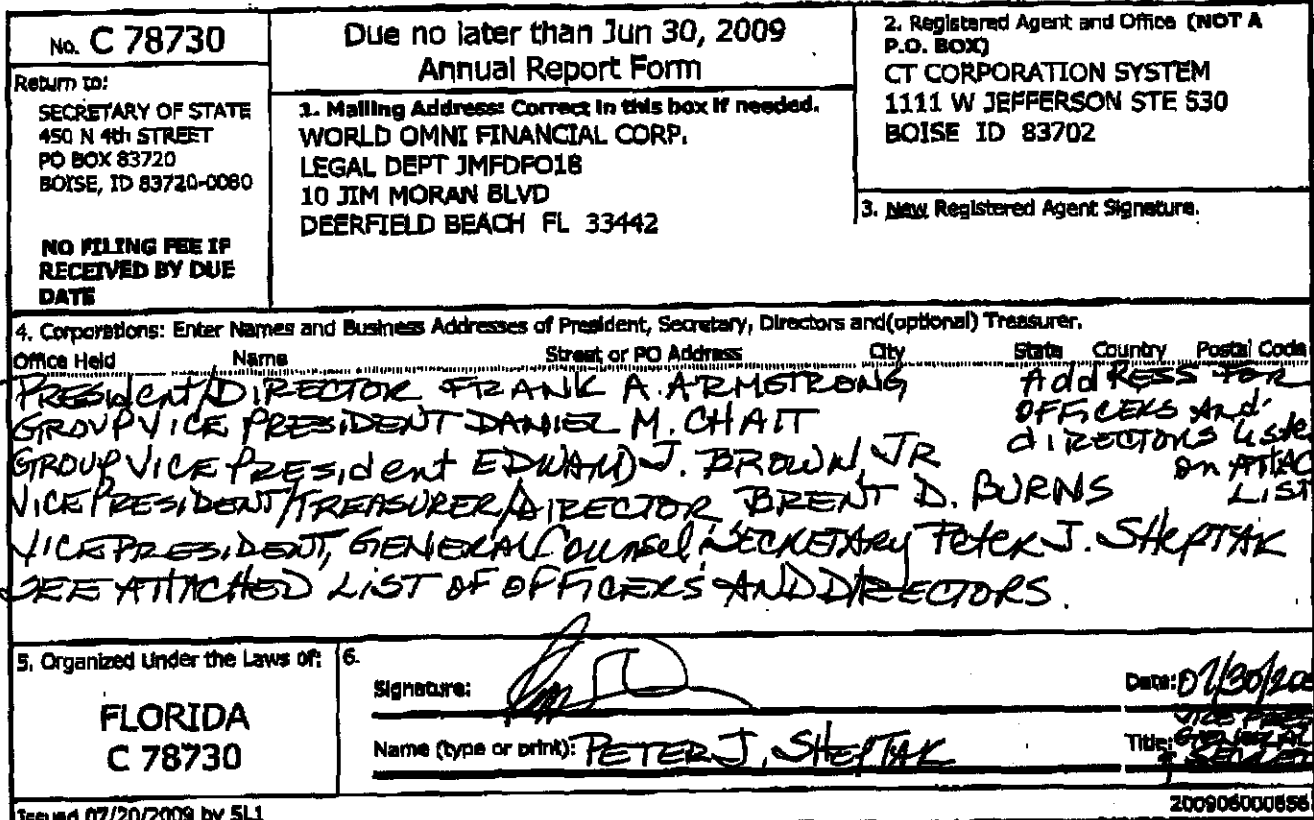 No. C 78730
Return to:
SECRETARY OF STATE
450 N 4th STREET
PO BOX 83720
BOISE, ID 83720-0080
NO FILING FEE IF
RECEIVED BY DUE
DATE
Due no later than Jun 30, 2009
Annual Report Form
1. Mailing Address: Correct in this box if needed.
WORLD OMNI FINANCIAL CORP.
LEGAL DEPT JMFDF018
10 JIM MORAN BLVD
DEERFIELD BEACH FL 33442
2. Registered Agent and Office (NOT A
P.O. BOX)
CT CORPORATION SYSTEM
1111 W JEFFERSON STE 530
BOISE ID 83702
3. New Registered Agent Signature.
4. Corporations: Enter Names and Business Addresses of President, Secretary, Directors and(optional) Treasurer.
Office Held Name Street or PO Address City State Country Postal Code
PRESIDENT/DIRECTOR FRANK A. ARMSTRONG
GROUP VICE PRESIDENT DANIEL M. CHAIT
GROUP VICE PRESIDENT EDWARD J. BROWN, JR
VICE PRESIDENT/TREASURER/DIRECTOR BRENT D. BURNS
VICE PRESIDENT, GENERAL COUNSEL SECRETARY PETER J. SHEPTAK
SEE ATTACHED LIST OF OFFICERS AND DIRECTORS.
ADDRESS FOR
OFFICERS AND
DIRECTORS LISTE
ON ATTAC
LIST
5. Organized Under the Laws of:
FLORIDA
C 78730
6.
Signature:
Date: 07/30/20
Name (type or print): PETER J. SHEPTAK
Title: VICE PRES
GENERAL
Issued 07/20/2009 by SL1
200906000656